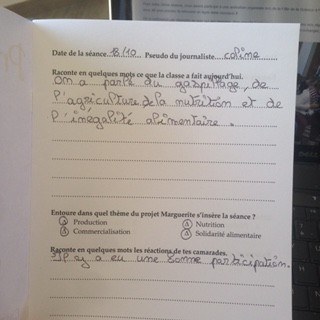 Date de la séance 18/10 Pseudo du journaliste coline
Raconte en quelques mots ce que la classe a fait aujourd'hui.
On a parlé du gaspillage, de
l'agriculture, de la nutrition et de
l'inégalité alimentaire.
Entoure dans quel thème du projet Marguerite s'insère la séance ?
Production
Nutrition
Commercialisation
Solidarité alimentaire
Raconte en quelques mots les réactions de tes camarades.
Il y a eu une bonne participation.